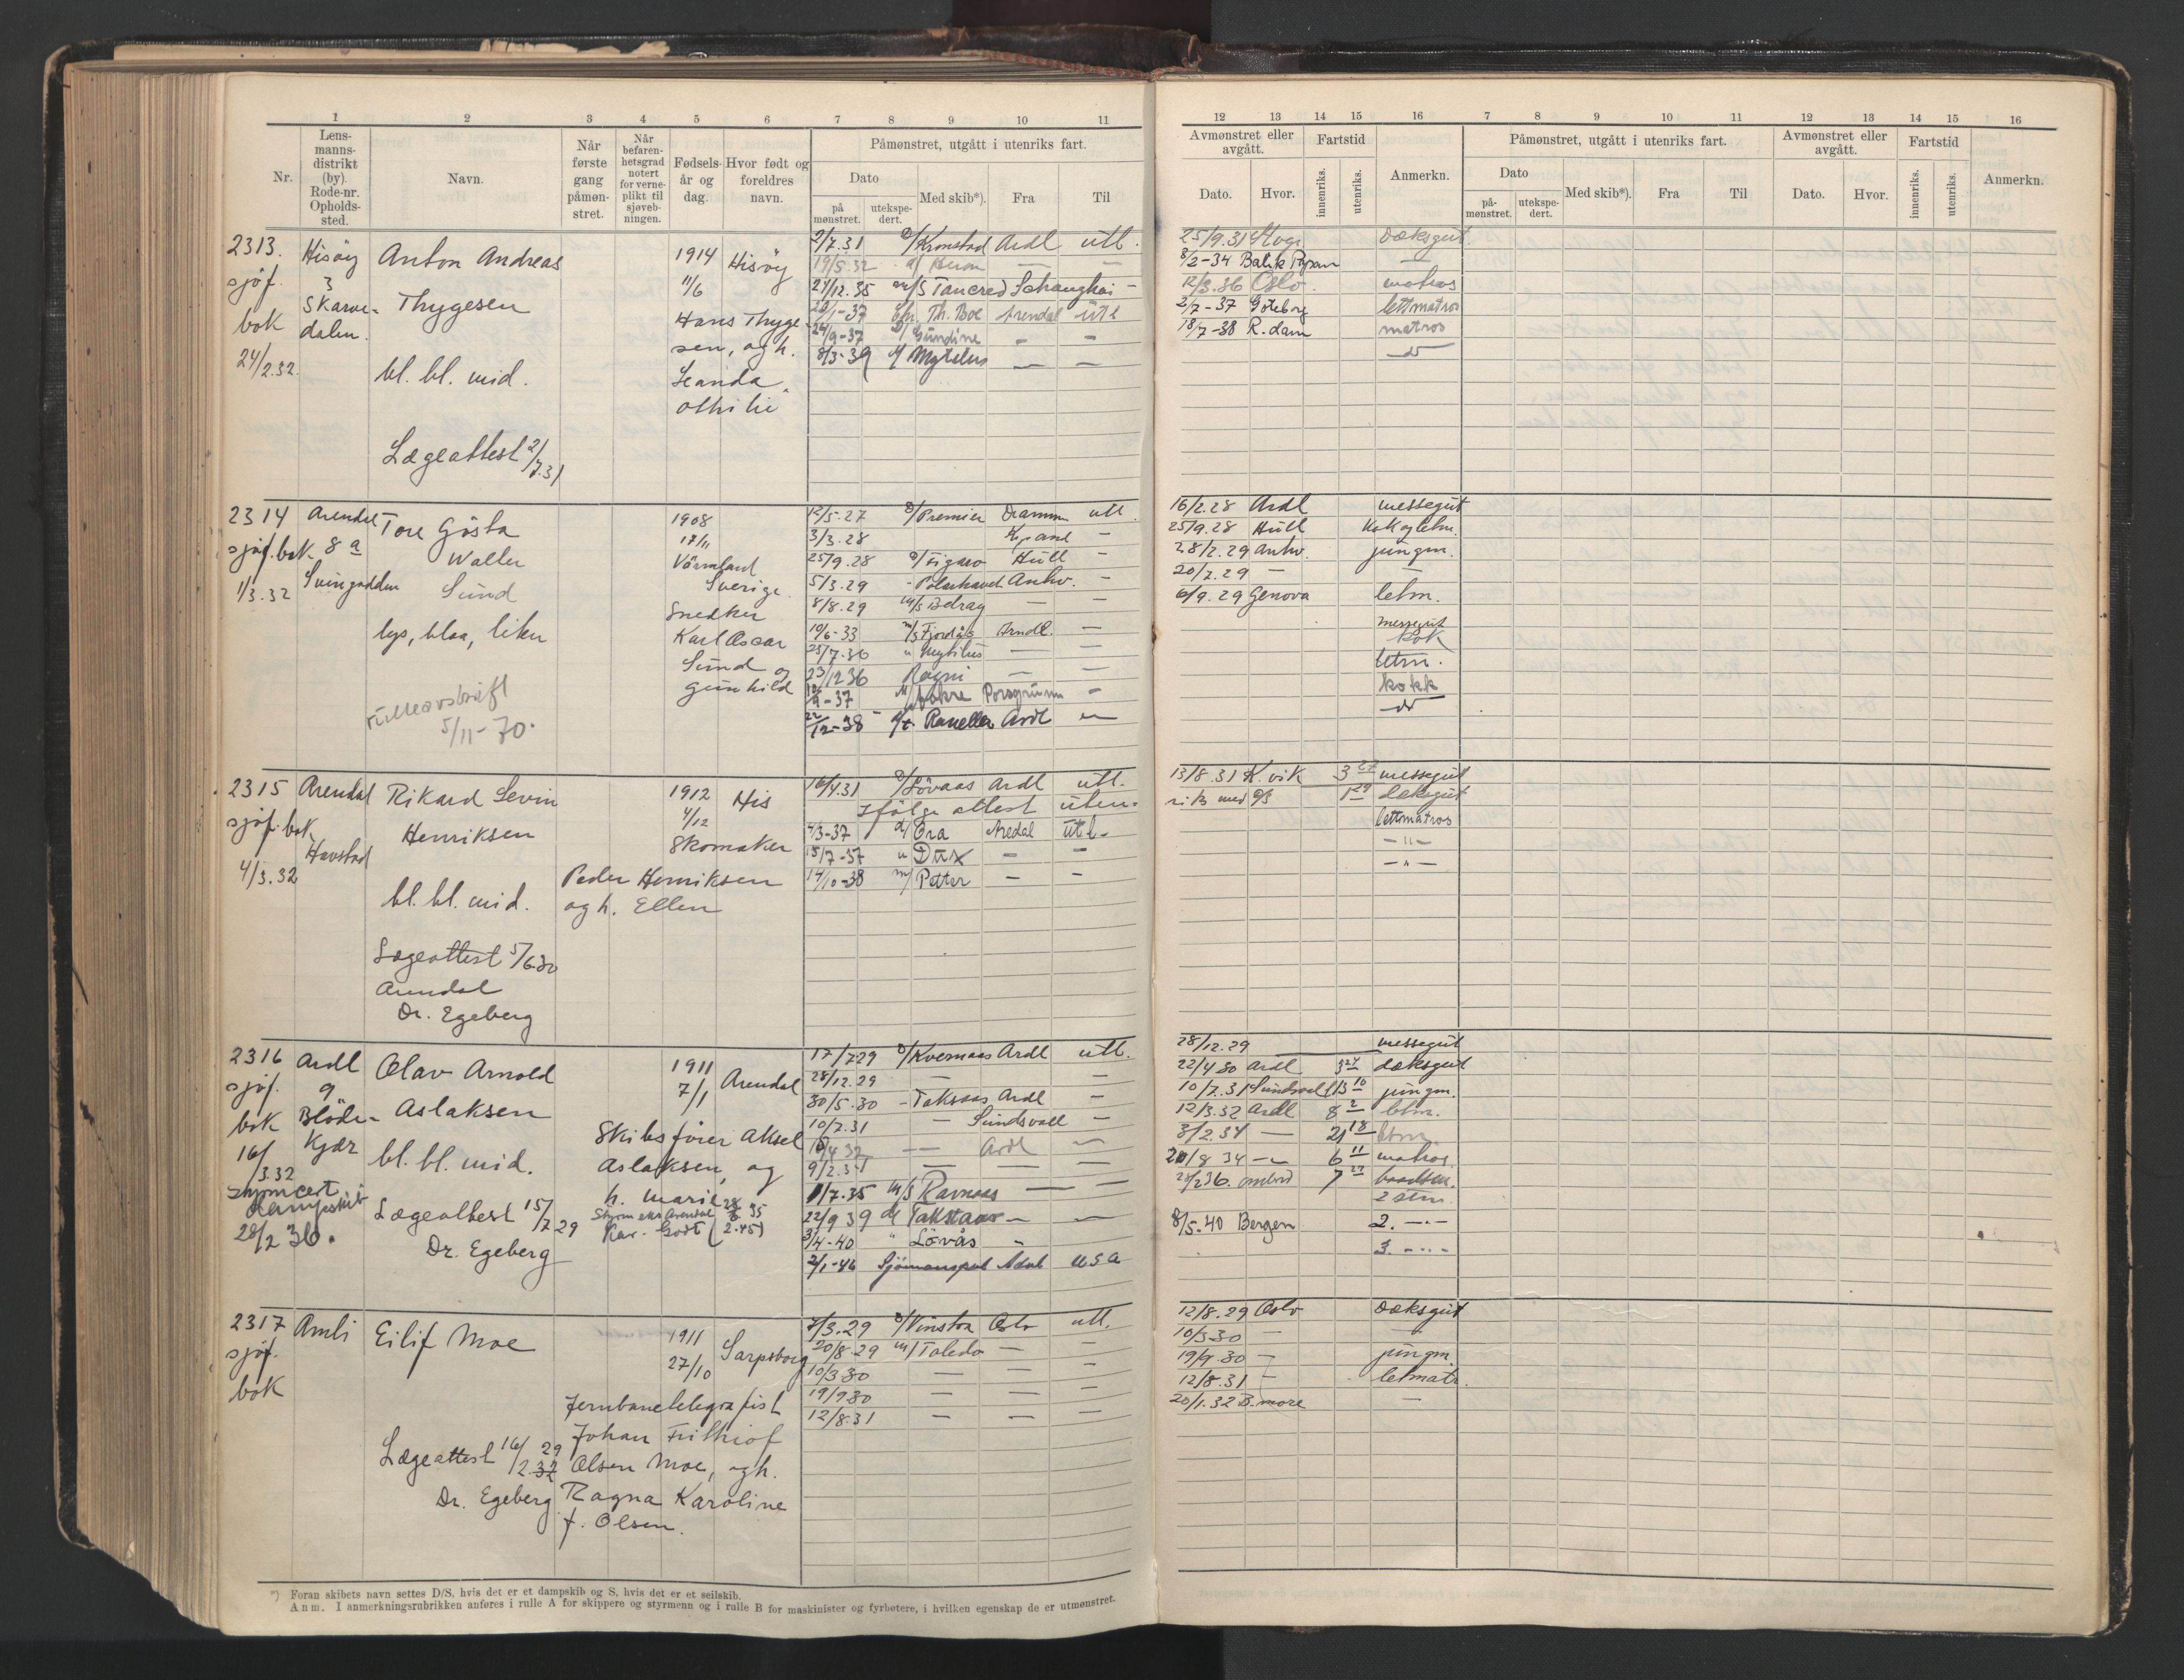 1 2 3 4 5 6 7 8 9 10 11
Nr.
Lens-
manns-
distrikt
(by).
Rode-nr.
Opholds-
sted.
Navn.
Når
første
gang
påmøn-
stret.
Når
befaren-
hetsgrad
notert
for verne-
plikt til
sjøveb-
ningen.
Fødsels-
år og
dag.
Hvor født og
foreldres
navn.
Påmønstret, utgått i utenriks fart.
Dato
på
mønstret.
utekspe-
dert.
Med skib*).
Fra
Til
2313. Hisöy Anton Andreas 1914 Hisöy 2/7.31 D/Kronstad Ardl utl.
sjöf. 3 11/6 19/5.32
bok Skarve- Thygesen 27/12.35 m/S Tancred Schanghai -
dalen. Hans Thyge- Th. Boe Arendal utl
24/2.32. sen, og h. 24/9-37 D/Gundine - -
bl. bl. mid. 8/3-39 Mytilus - -
Leanda
othilie
Lægeattest 2/7.31
2314 Arendal Tore Gösta 1908 12/5-27 D/Premier Dramm utl.
sjöf.bok 8a Waller 17/11 3/3.28 -
1/3.32 Sund Värmland 25/9.28 D/Figaro Hull -
Sverige. 5/3.29 Anhv. -
lys, blaa, liten Snedker 8/8.29 m/s Belray - -
Karl Oscar 10/6-33 m/s Fjordås Arndl. -
Sund og 25/7.36 " Mytilus - -
Gunhild 23/12 36 Ragni - -
9-37 Porsgrunn -
5/11-70. 22/12-38 Ranella Ardl -
2315 Arendal Rikard Levin 1912 His 16/4.31 D/Lövaas Ardl utl.
sjöf.bok Henriksen 4/12 Ifölge attest uten-
Havstad Skomaker 4/3-37 d/Era Aredal utl-
4/3.32 Peder Henriksen 15/7-37 " Dux - -
bl. bl. mid. og h. Ellen 14/10-38 m/Petter - -
Lægeattest 5/6.30
Arendal
Dr. Egeberg
2316 Ardl Olav Arnold 1911 Arendal 17/7 29 D/Kvernaas Ardl utl.
sjöf. 9 7/1 28/12.29 - -
bok Blöde- Aslaksen 30/5.30 - Taksaas Ardl -
16/3.32 kjær Skibsförer Aksel 10/7.31 - Sundsvall -
bl. bl. mid. Aslaksen, og Ardl
h. Marie 9/2.34 - - -
Lægeattest 15/7.29 1/7.35 m/S Ravnaas - -
28/2 36. 22/9 39 Takstaas - -
Dr. Egeberg 3/4-40 " Lövås -
2/1-46 USA
2317 Amli Eilif Moe 1911 Sarpsborg 7/3.29 D/Vinstra Oslo utl.
sjöf. 27/10 20/8.29 m/Toledo - -
bok 10/3 30 - - -
Jernbanetelegrafist 19/9 30 - - -
Johan Frithiof 12/8.31 - - -
Lægeattest 16/2.32 29 Olsen Moe, og h.
Dr. Egeberg Ragna Karoline
f. Olsen.
*) Foran skibets navn settes D/S. hvis det er et dampskib og S, hvis det er et seilskib.
Anm. I anmerkningsrubrikken anføres i rulle A for skippere og styrmenn og i rulle B for maskinister og fyrbøtere, i hvilken egenskap de er utmønstret.
12 13 14 15 16 7 8 9 10 11 12 13 14 15 16
Avmønstret eller
avgått.
Dato. Hvor.
Fartstid
innenriks. utenriks.
Anmerkn.
Påmønstret, utgått i utenriks fart.
Dato
på-
mønstret.
utekspe-
dert.
Med skib*). Fra Til
Avmønstret eller
avgått.
Dato. Hvor.
Fartstid
innenriks. utenriks.
Anmerkn.
25/9.31 dæksgut.
8/2-34 Balik Papan -
12/3.36 Oslo. matros
2/7-37 Göteborg lettmatros
18/7-38 R.dam matros
16/2.28 Ardl messegut
25/9.28 Hull Kok og letm.
28/2.29 Anhv. jungm.
20/7.29 -
6/9.29 Genova letm.
messegut
kok
letm.
kokk
13/8.31 K.vik 3 27 messegut
riks med dæksgut
lettmatros
- " -
- " -
28/12.29 messegut
22/4 30 Ardl 3 24 dæksgut
10/7.31 Sundsvall 13 10 jungm.
12/3.32 Ardl 8 2 letm.
3/2.34 - 21 18
20/8 34 - 6 11 matros
ombord 7 27 baadsm.
2 stm.
8/5-40 Bergen 2. - " -
3. - " -
12/8.29 Oslo dæksgut
10/3-30 - -
19/9.30 - jungm.
12/8.31 - letmatr.
20/1.32 B.more -